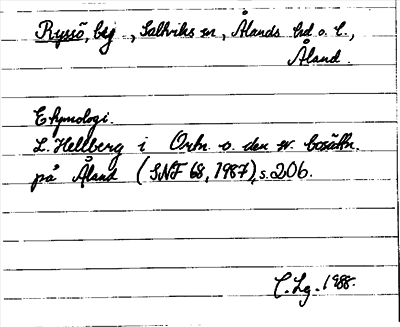 Ryssö, bsj, Saltviks sn, Ålands hd o. l.,
Åland.
Etymologi.
L. Hellberg i Ortn. o. den sv. bosättn.
på Åland (SNF 68, 1987), s. 206.
C. Lg. 1988.